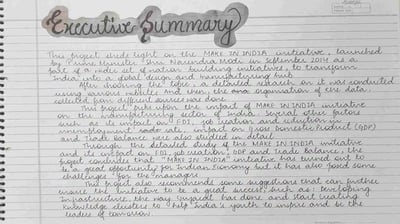 Executive Summary
This project sheds light on the MAKE IN INDIA initiative, launched
by Prime Minister Shri Narendra Modi in September 2014 as a
part of a wider set of nation building initiatives, to transform
India into a global design and manufacturing hub.
After choosing the topic, a detailed research on it was conducted
using various websites and then, the organisation of the data
collected from different source was done.
This project talks upon the impact of MAKE IN INDIA initiative
on the manufacturing sector of India. Several other factors
such as its impact on FDI, job creation and reduction in
unemployment rate, impact on Gross Domestic Product (GDP)
and Trade Balance were also studied in detail.
Through the detailed study of the MAKE IN INDIA initiative
and its impact on FDI, job creation, GDP and Trade Balance, the
project concludes that "MAKE IN INDIA" initiative has turned out to
be a great opportunity for Indian Economy but it has also posed some
challenges for the managers.
This project also recommends some suggestions that can further
ensure the initiative to be a great success such as: Developing
Infrastructure the way Gujarat has done and start creating
knowledge cities to help India's youth to inspire and be the
leaders of tomorrow.